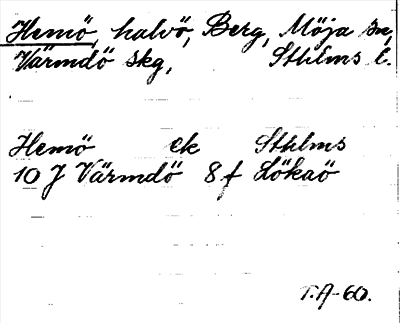 Hemö, halvö, Berg, Möja sn,
Värmdö skg, Sthlms l.
Hemö ek Sthlms
10 J Värmdö 8 f Lökaö
T.A-60.